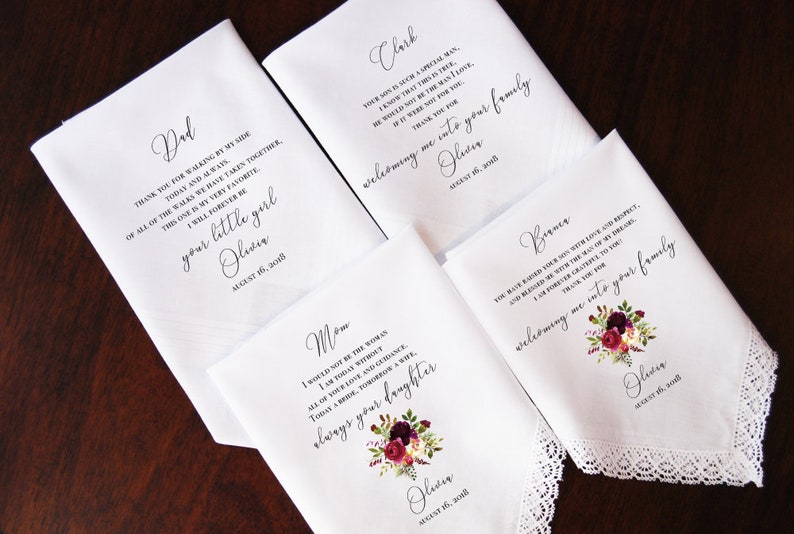 Dad
THANK YOU FOR WALKING BY MY SIDE
TODAY AND ALWAYS.
OF ALL OF THE WALKS WE HAVE TAKEN TOGETHER,
THIS ONE IS MY VERY FAVORITE.
I WILL FOREVER BE
your little girl
Olivia
AUGUST 16, 2018
Clark
YOUR SON IS SUCH A SPECIAL MAN,
I KNOW THAT THIS IS TRUE,
HE WOULD NOT BE THE MAN I LOVE,
IF IT WERE NOT FOR YOU.
THANK YOU FOR
welcoming me into your family
Olivia
AUGUST 16, 2018
Mom
I WOULD NOT BE THE WOMAN
I AM TODAY WITHOUT
ALL OF YOUR LOVE AND GUIDANCE.
TODAY A BRIDE, TOMORROW A WIFE,
always your daughter
Olivia
AUGUST 16, 2018
Bianca
YOU HAVE RAISED YOUR SON WITH LOVE AND RESPECT,
AND BLESSED ME WITH THE MAN OF MY DREAMS.
I AM FOREVER GRATEFUL TO YOU!
THANK YOU FOR
welcoming me into your family
Olivia
AUGUST 16, 2018